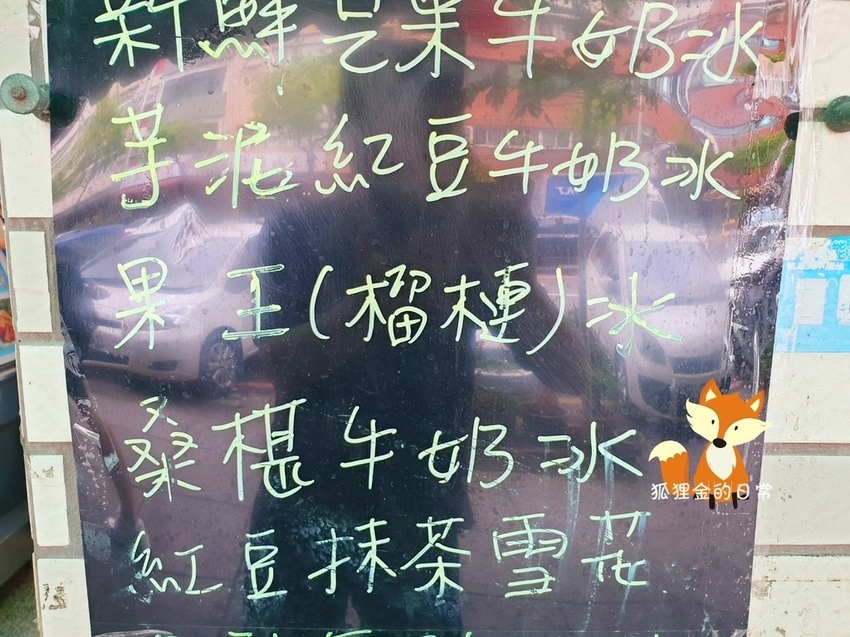 新鮮芒果牛奶冰
芋泥紅豆牛奶冰
果王(榴槤)冰
桑椹牛奶冰
狐狸金的日常
紅豆抹茶雪花